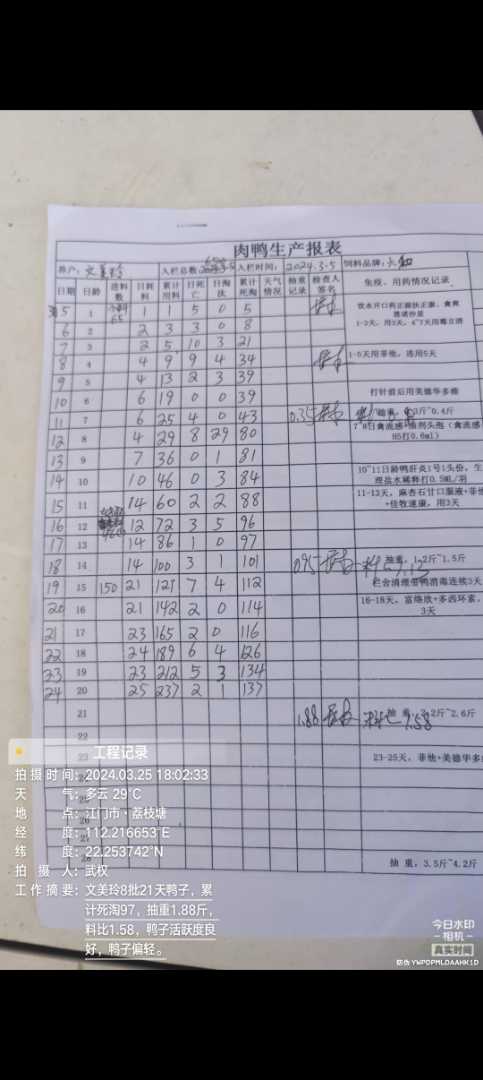 肉鸭生产报表
养户：文美玲 入栏总数： 入栏时间：2024.3.5 饲料品牌：
日期 日龄 进料数 日耗料 累计用料 日死亡 日淘汰 累计死淘 天气情况 抽重记录 检查人签名 免疫、用药情况记录
5 1 1 1 5 0 5
6 2 2 3 3 0 8
7 3 2 5 10 3 21
8 4 4 9 9 4 34 1-5天用菲他，连用5天
9 5 4 13 2 3 39
10 6 6 19 0 0 39 打针前后用美德华多维
11 7 6 25 4 0 43 0.35
12 8 4 29 8 29 80
13 9 7 36 0 1 81
14 10 10 46 0 3 84 10~11日龄鸭肝炎1号1头份，生理盐水稀释打0.5mL/羽
15 11 14 60 2 2 88 11-13天，麻杏石甘口服液+菲他+佳牧速康，用3天
16 12 12 72 3 5 96
17 13 14 86 1 0 97
18 14 14 100 3 1 101 0.95 抽重：1.2斤~1.5斤
19 15 150 21 121 7 4 112 栏舍清理带鸭消毒连续3天
20 16 21 142 2 0 114 16-18天，富络欣+多西环素，3天
21 17 23 165 2 0 116
22 18 24 189 6 4 126
23 19 23 212 5 3 134
24 20 25 237 2 1 137
21 1.88 抽重：2.2斤~2.6斤
22
23 23-25天，菲他+美德华多维
25
26
27
28 抽重：3.5斤~4.2斤
工程记录
拍摄时间：2024.03.25 18:02:33
天气：多云 29℃
地点：江门市·荔枝塘
经度：112.216653°E
纬度：22.253742°N
拍摄人：武权
工作摘要：文美玲8批21天鸭子，累
计死淘97，抽重1.88斤，
料比1.58，鸭子活跃度良
好，鸭子偏轻。
今日水印
相机
真实时间
防伪 YWPDPMLDAAHK1D